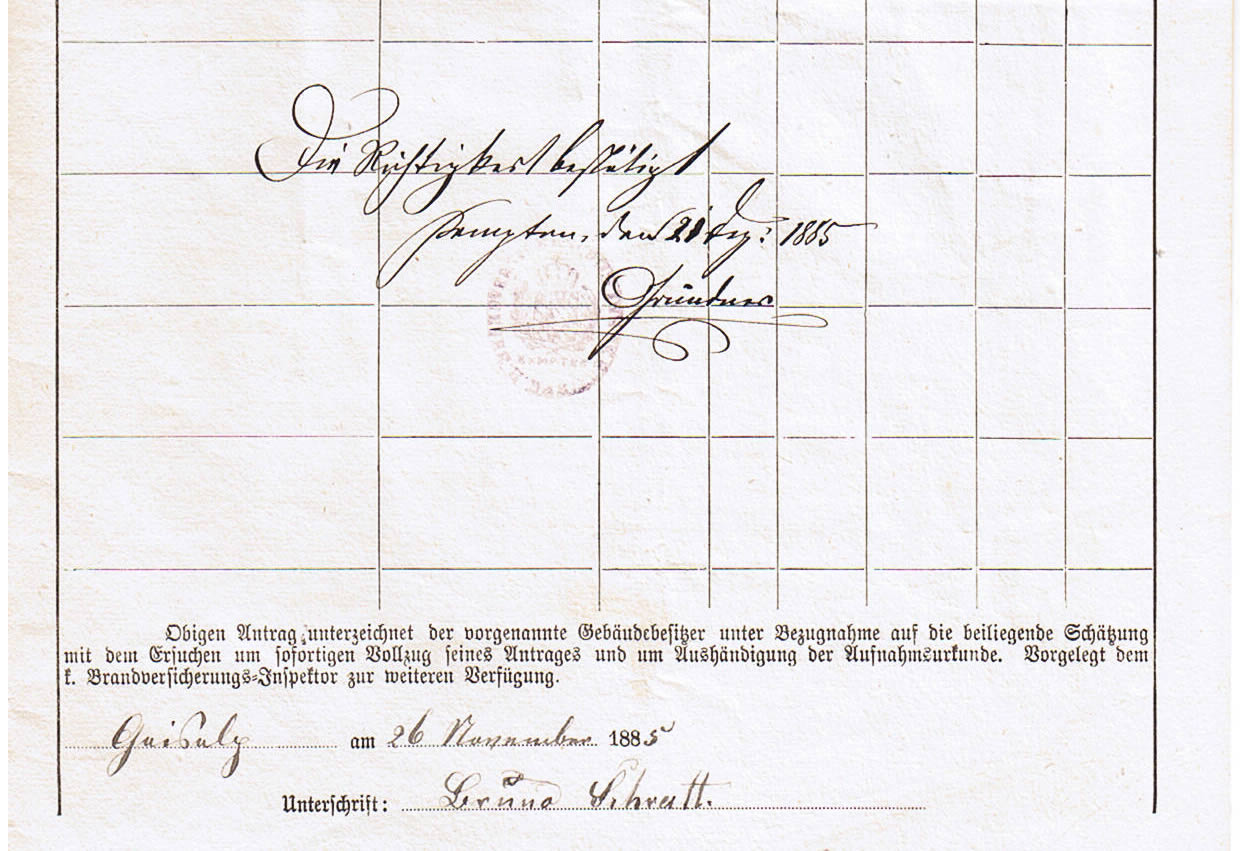 Die Richtigkeit bestätigt
Kempten, den 21 Dez: 1885
Gründner
KEMPTEN
Obigen Antrag unterzeichnet der vorgenannte Gebäudebesitzer unter Bezugnahme auf die beiliegende Schätzung
mit dem Ersuchen um sofortigen Vollzug seines Antrages und um Aushändigung der Aufnahmsurkunde. Vorgelegt dem
k. Brandversicherungs-Inspektor zur weiteren Verfügung.
Gaisalp am 26 November 1885
Unterschrift: Bruno Schratt.